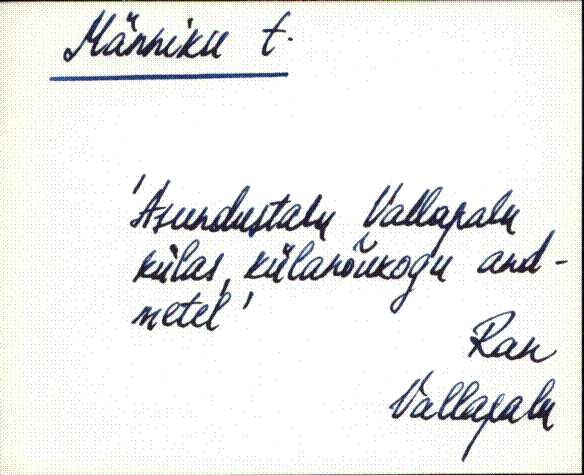 Männiku t.
'Asundustalu Vallapalu
külas, külanõukogu and-
metel'
Ran
Vallapalu